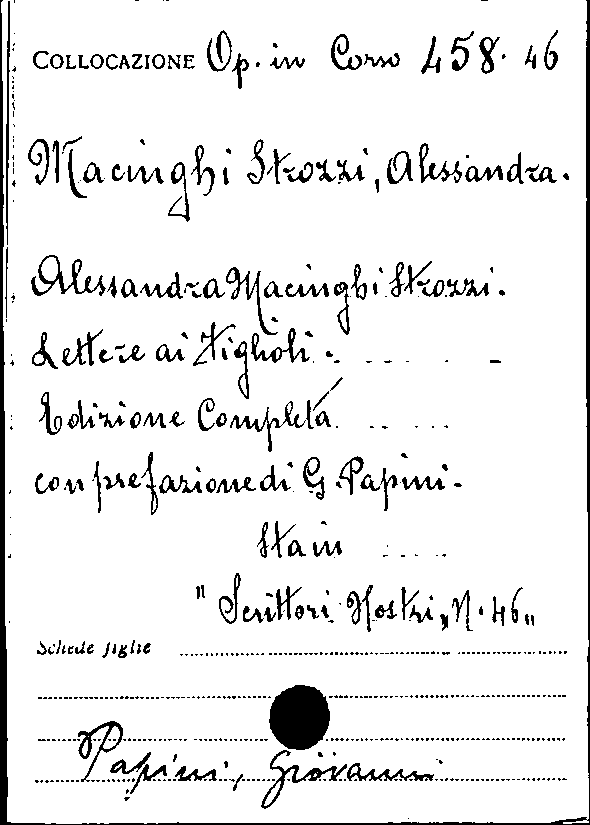 COLLOCAZIONE Op. in Corso 458. 46
Macinghi Strozzi, Alessandra.
Alessandra Macinghi Strozzi.
Lettere ai Figlioli. _ _ _ _ _
Edizione Completa. .. .. ..
con prefazione di G. Papini.
Sta in ....
"Scrittori Nostri" N. 46"
Schede figlie
Papini, Giovanni